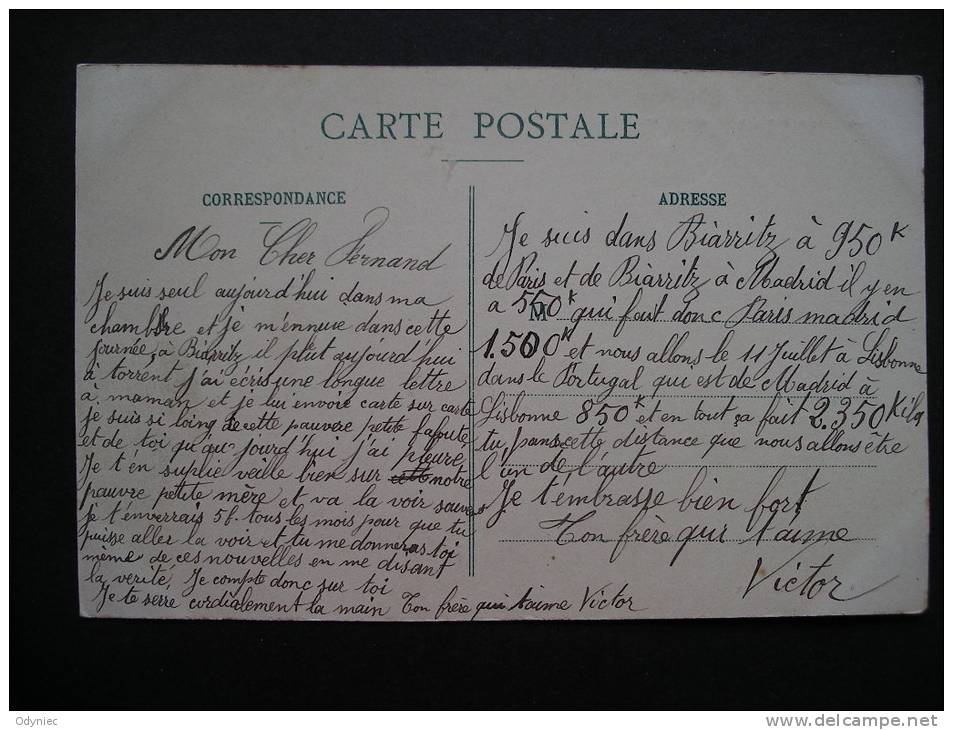 CARTE POSTALE
CORRESPONDANCE
Mon Cher Fernand
Je suis seul aujourd'hui dans ma
chambre et je m'ennue dans cette
journée, à Biarritz il plut aujourd'hui
à torrent j'ai écris une longue lettre
à maman et je lui envoie carte sur carte
je suis si loing de cette pauvre petite
et de toi qu'aujourd'hui j'ai pleuré
Je t'én suplie veille bien sur notre
pauvre petite mère et va la voir souvent
je t'enverrais 5f. tous les mois pour que tu
puisse aller la voir et tu me donneras toi
même de ces nouvelles en me disant
la verite. Je compte donc sur toi
Je te serre cordialement la main Ton frère qui t'aime Victor
ADRESSE
Je suis dans Biarritz à 950 K
de Paris et de Biarritz à Madrid il y en
a 550 K qui fait donc Paris madrid
1.500 K et nous allons le 11 Juillet à Lisbonne
dans le Portugal qui est de Madrid à
Lisbonne 850 K et en tout ça fait 2.350 Kilos
tu pense cette distance que nous allons être
l'un de l'autre
Je t'émbrasse bien fort
Ton frère qui t'aime
Victor
Odyniec
www.delcampe.net